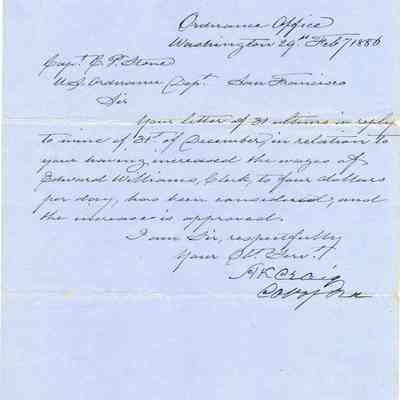 Ordnance Office
Washington 29th Feby 1856
Capt. C. P. Stone
U.S. Ordnance Dept. San Francisco
Sir
Your letter of 31 ultimo in reply
to mine of 31st of December, in relation to
your having increased the wages of
Edward Williams, Clerk, to four dollars
per day, has been considered, and
the increase is approved.
I am Sir, respectfully
Your Ob. Servt.
H K Craig
Col of Ord